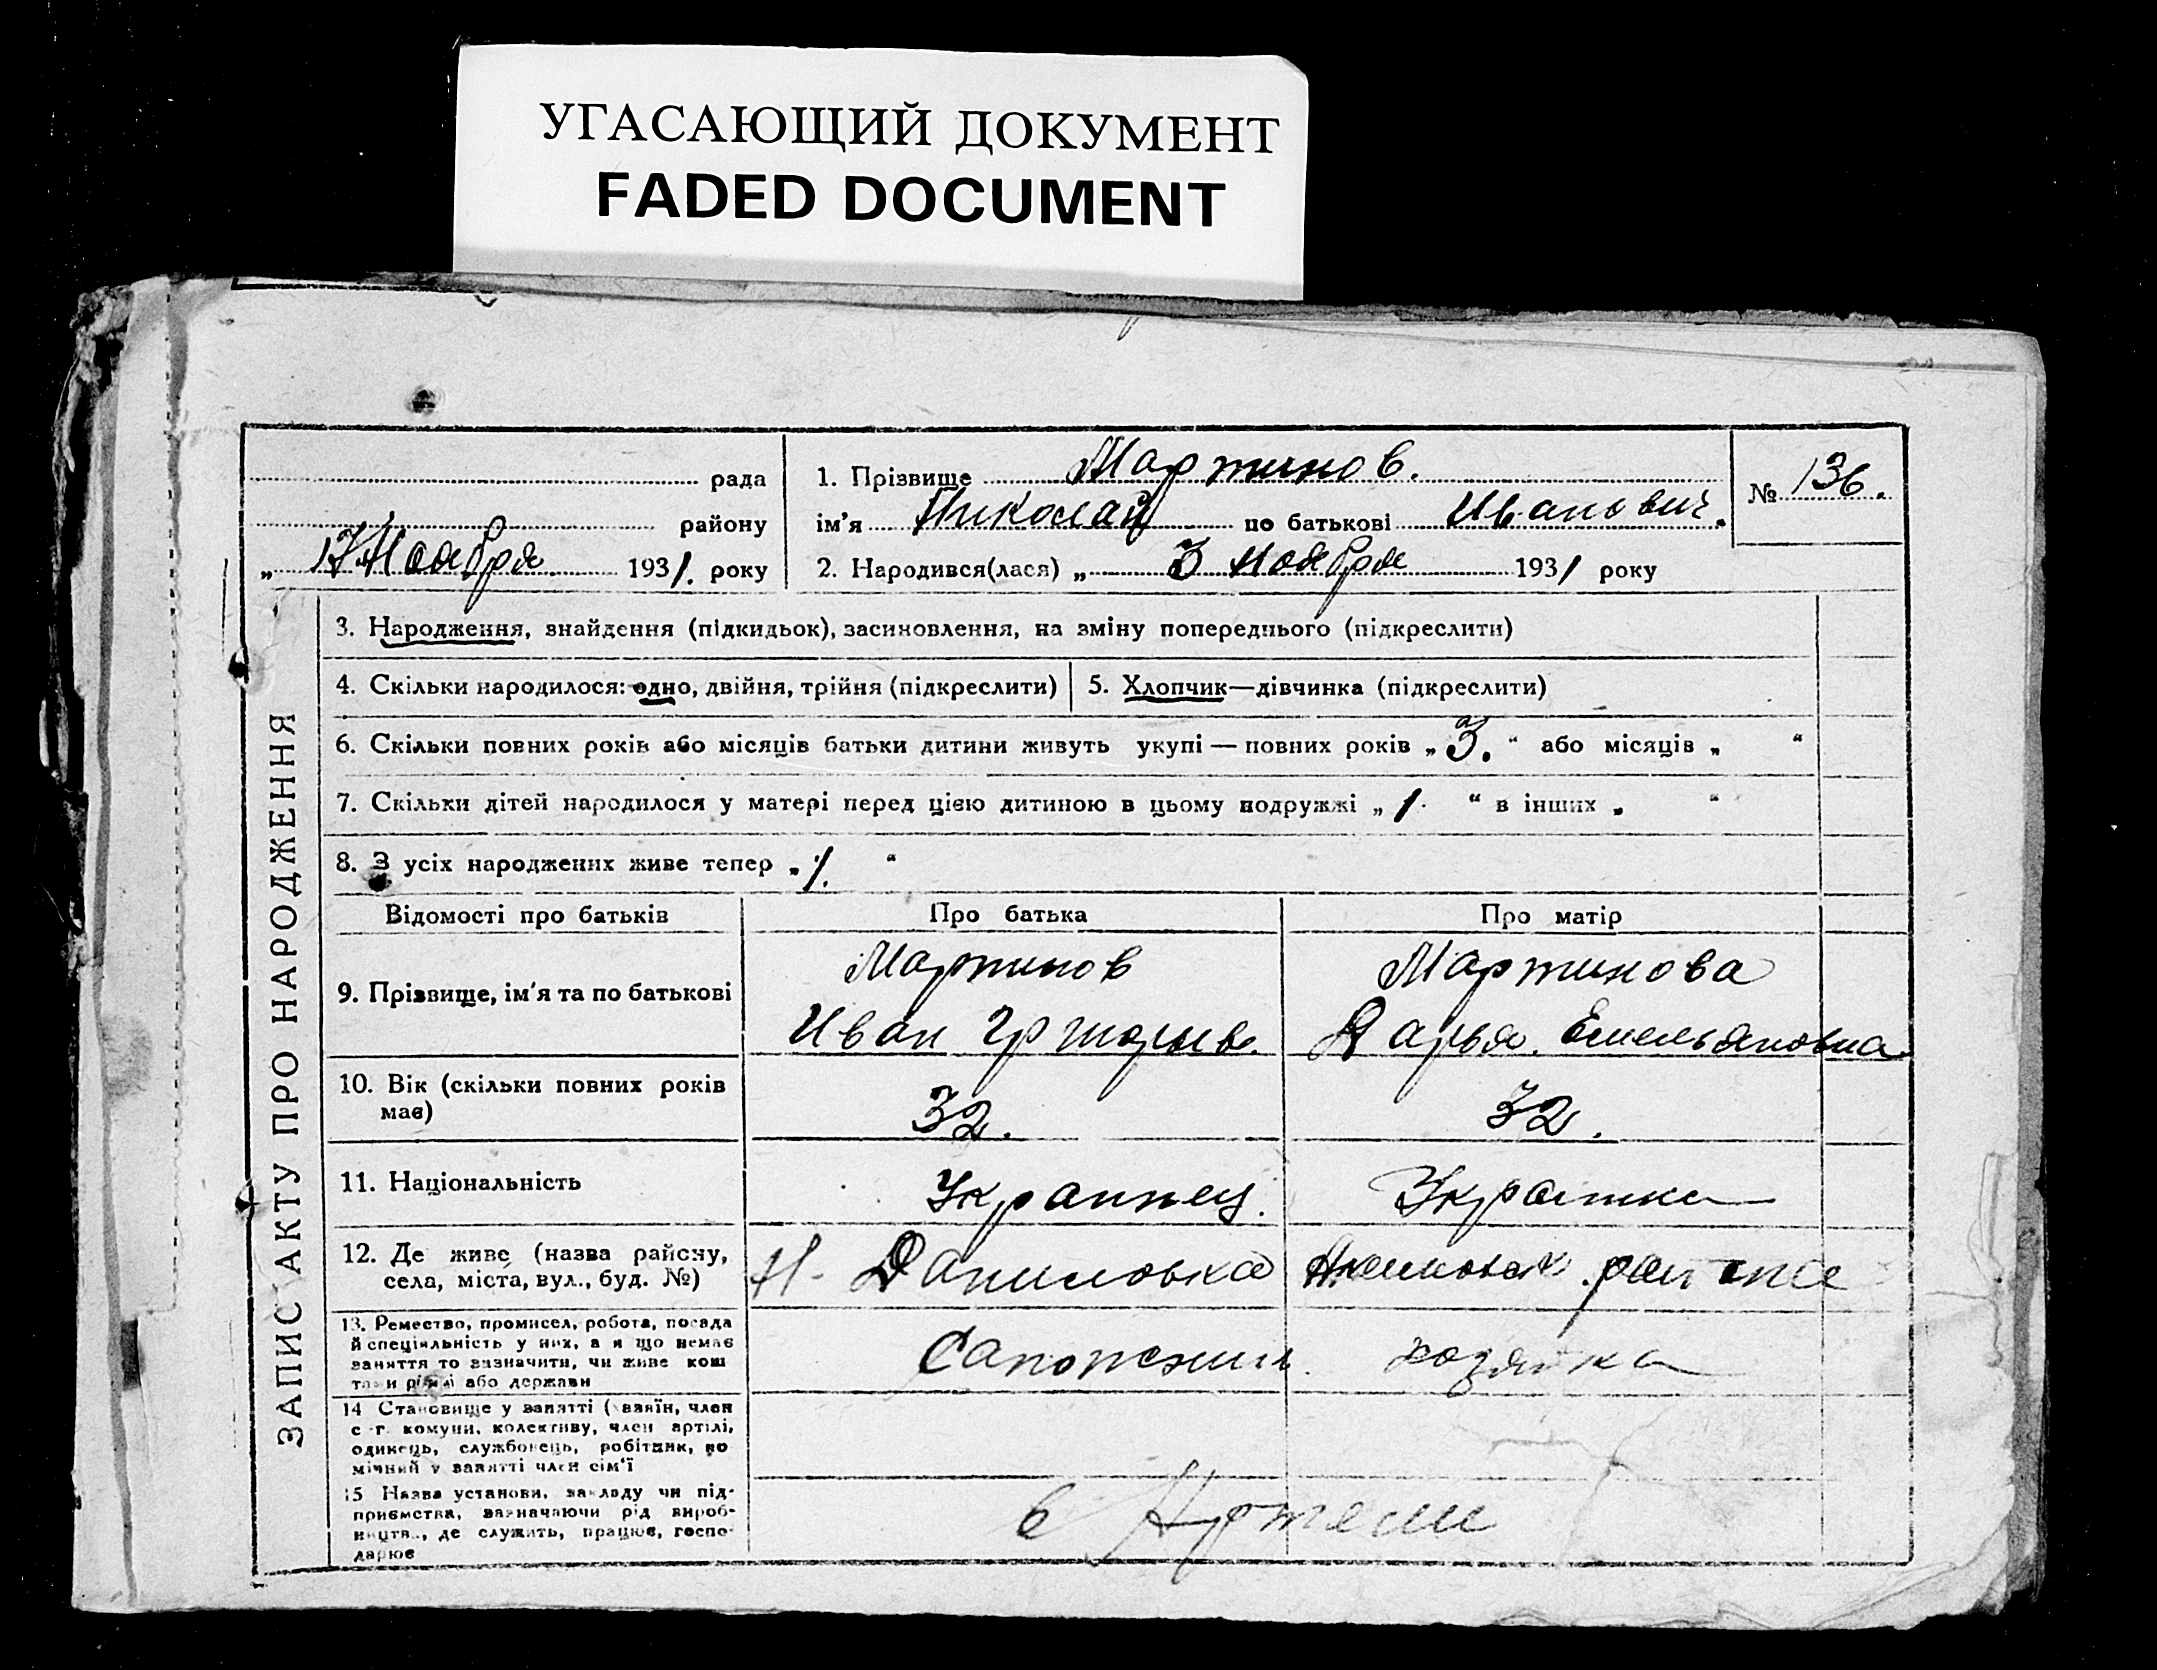 УГАСАЮЩИЙ ДОКУМЕНТ
FADED DOCUMENT
рада
району
„ 17 Ноября 1931. року
1. Прізвище Мартинов.
ім’я Николай по батькові Иванович.
2. Народився(лася) „ 3 Ноября 1931 року
№ 136.
ЗАПИС АКТУ ПРО НАРОДЖЕННЯ
3. Народження, знайдення (підкидьок), засиновлення, на зміну попереднього (підкреслити)
4. Скільки народилося: одно, двійня, трійня (підкреслити)
5. Хлопчик—дівчинка (підкреслити)
6. Скільки повних років або місяців батьки дитини живуть укупі — повних років „ 3. “ або місяців „ “
7. Скільки дітей народилося у матері перед цією дитиною в цьому подружжі „ 1. “ в інших „ “
8. З усіх народжених живе тепер „ 1. “
Відомості про батьків Про батька Про матір
9. Прізвище, ім’я та по батькові
Мартинов
Иван Григорьев.
Мартинова
Дарья. Емельяновна
10. Вік (скільки повних років
має)
32. 32.
11. Національність Украинец. Украинка
12. Де живе (назва району,
села, міста, вул., буд. №)
Н- Даниловка района
13. Ремество, промисел, робота, посада
й спеціяльність у них, а я що немає
заняття то зазначити, чи живе кош
тами рідні або держави
Сапожник. хозяйка
14 Становище у занятті (хазяїн, член
с-г. комуни, колективу, член артілі,
одинець, службовець, робітник, по
мічний у занятті член сім’ї
15 Назва установи, закладу чи під-
приємства, зазначаючи рід вироб-
ництв., де служить, працює, госпо-
дарює
в Артели